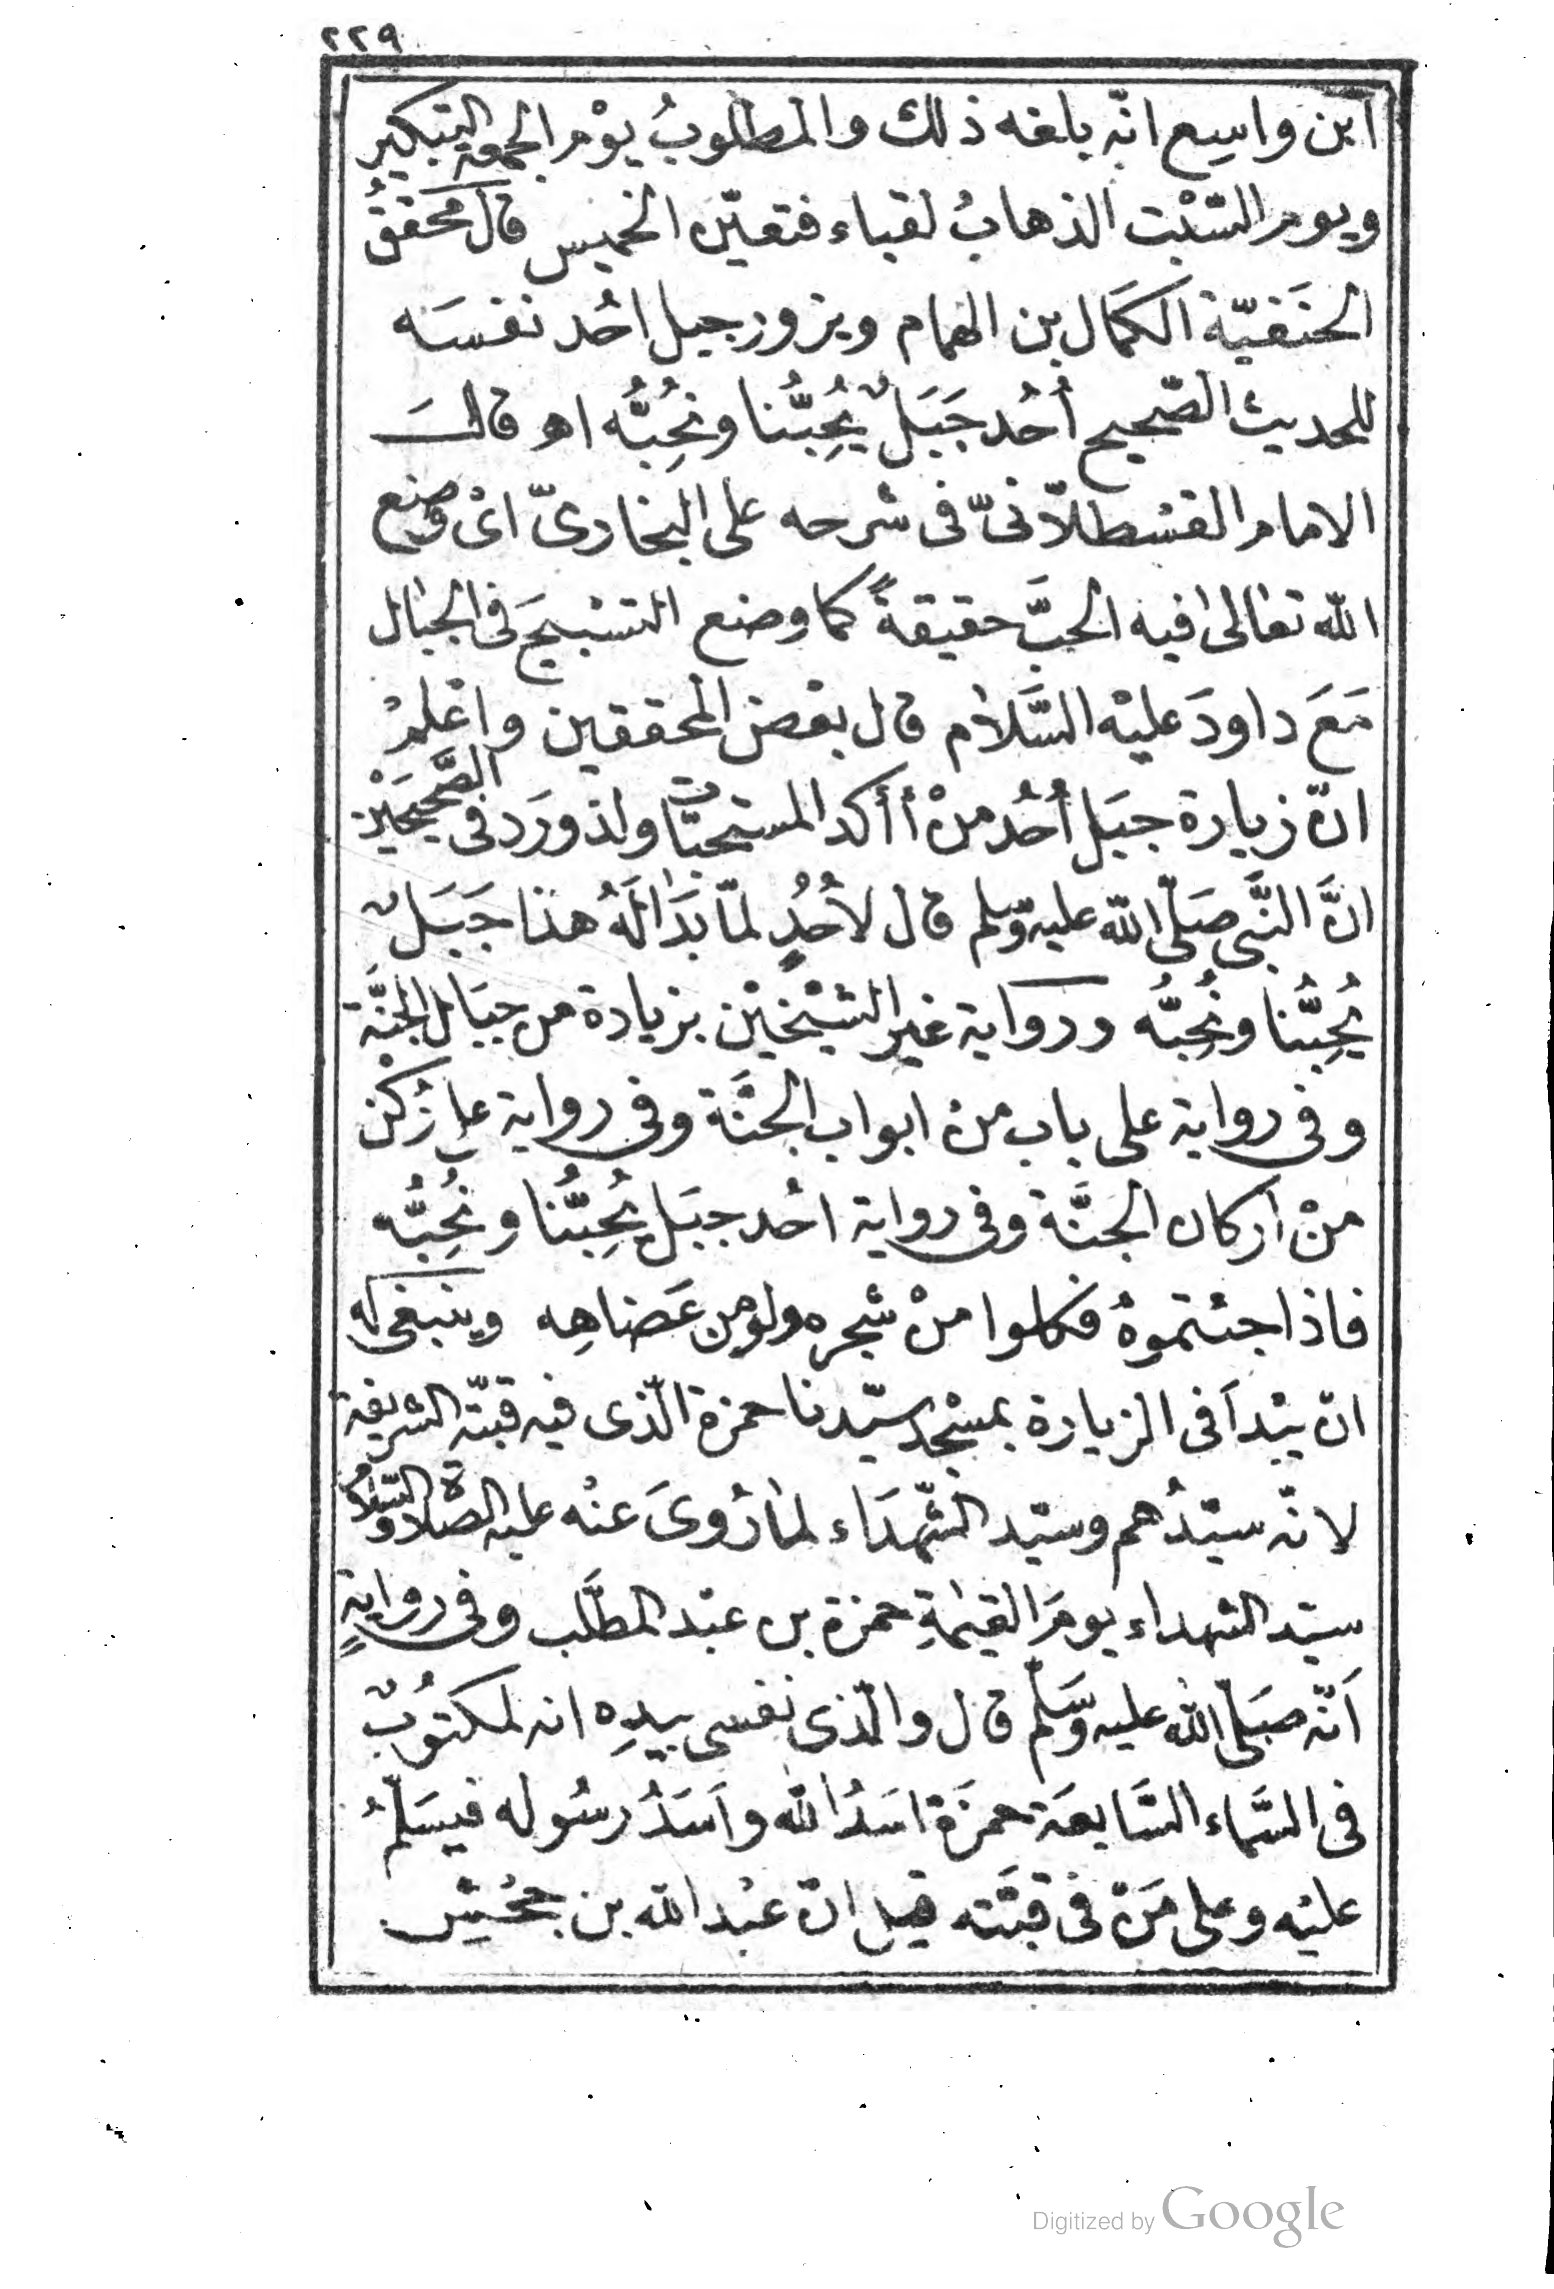 ٢٢٩
ابن واسِع انّه بلغه ذلك والمطلوبُ يوْم الجمعة التبكير
ويوم السّبْت الذهابُ لقباء فتعيّن الخميس قال محققُ
الحنَفيّة الكمَال بن الهمام ويزور جبل احُد نفسَه
للحديث الصّحيح أُحُد جَبَلٌ يُحِبُّنا ونُحِبُّه اهـ قالَ
الامام القسْطلّانىّ فى شرحه على البخارىّ اىْ وضع
الله تعالى فيه الحبَّ حقيقةً كما وضع التسْبيحَ فى الجبال
مَعَ داودَ عليْه السَّلام قال بعْض المحققين واعْلمْ
انّ زيارة جبَل أُحُد منْ أأكد المستحبّات ولذ ورَد فى الصَّحيحَيْن
انَّ النَّبى صَلّى الله عليه وسلم قال لأُحُدٍ لمّا بَدَا لَهُ هذا جَبَلٌ
يُحِبُّنا ونُحِبُّه ورواية غير الشيْخيْن بزيادة من جبَال الجنَّة
وفى رواية على باب منْ ابواب الجنَّة وفى رواية على رُكْن
منْ اَركان الجنَّة وفى رواية احُد جبَل يُحِبُّنا ونُحِبُّه
فاذا جئتموهُ فكلوا منْ شجره ولو من عَضاهِه وينبغى له
انّ يبْدأ فى الزيارة بمسْجد سيّدنا حمزة الّذى فيه قبّته الشريفة
لانّه سيّدُهم وسيّد الشّهدَاء لما رُوىَ عنْه عليه الصّلاة والسّلامُ
سيّد الشهداء يومَ القيٰمةِ حمزة بن عبْد المطَّلب وفى روايةٍ
اَنّه صَلّى الله عليه وَسَلّم قال والّذى نفسى بيدِه انه لمكتوُبٌ
فى السَّماء السَّابعَة حمزَة اسَدُ الله واَسَدُ رسُوله فيسَلّمُ
عليْه وعلى مَنْ فى قبَّته قيل انّ عبْد الله بن جحْش
Digitized by Google